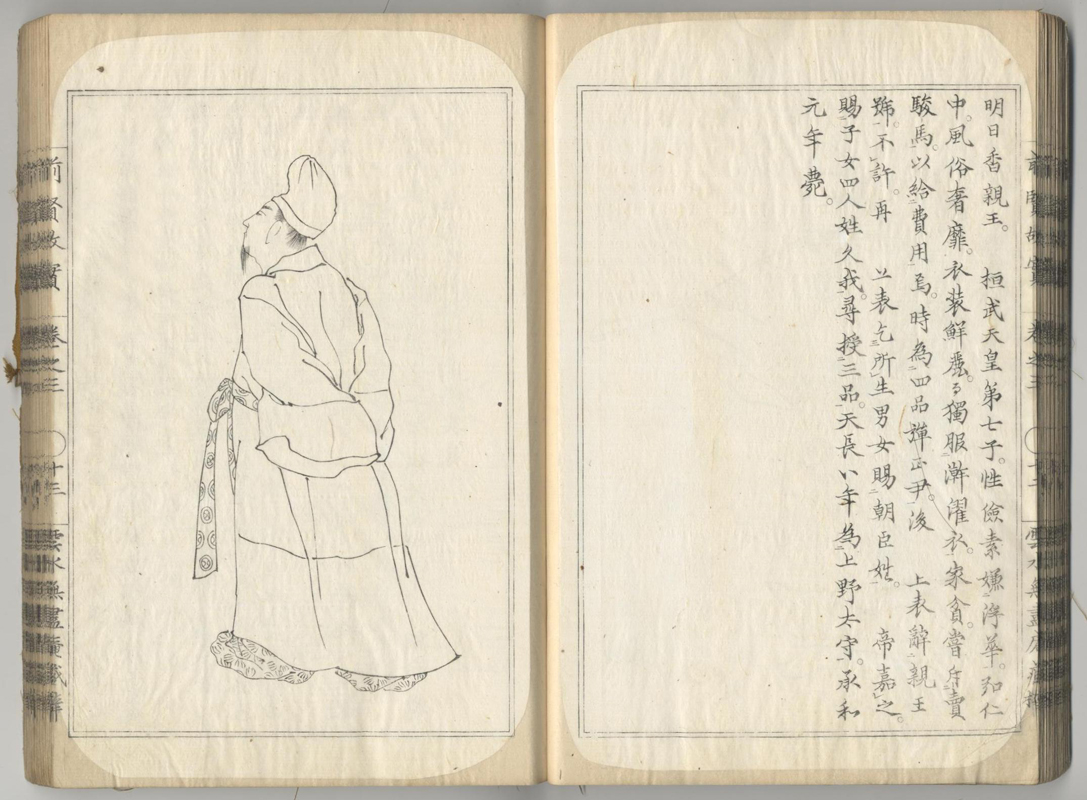 明日香親王。 桓武天皇第七子。性儉素嫌浮華。弘仁
中。風俗奢靡。衣装鮮麗。獨服澣濯衣。家貧嘗斥賣
駿馬。以給費用焉。時為四品彈正尹。後 上表辭親王
號。不許。再 上表乞所生男女賜朝臣姓。 帝嘉之。
賜子女四人姓久我。尋授三品。天長八年為上野太守。承和
元年薨。
前賢故實 卷之三 十三 雲水無盡庵藏